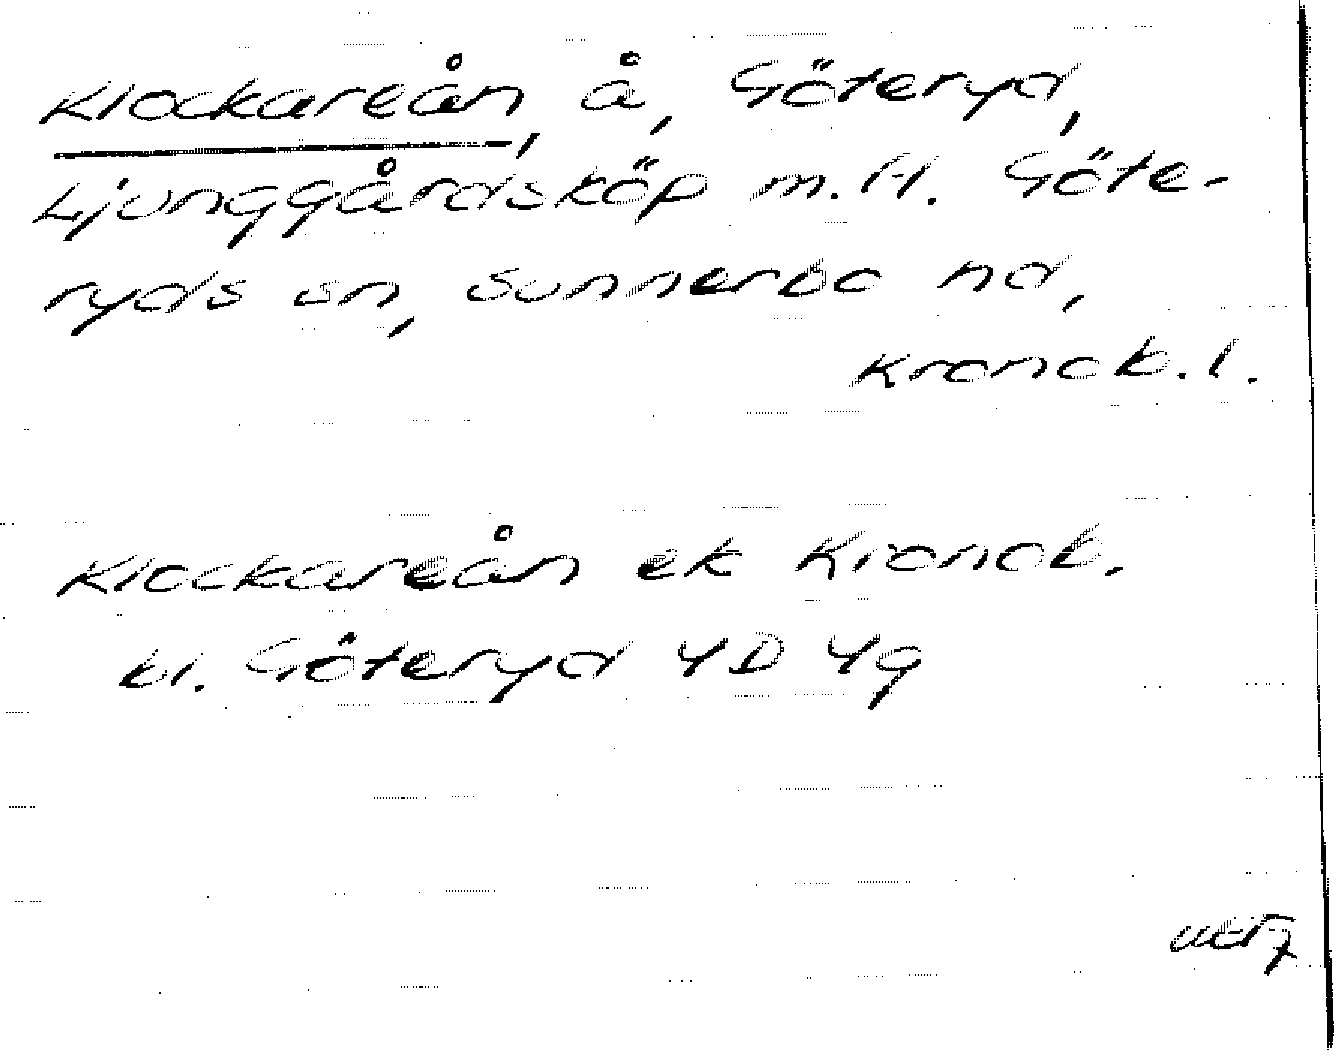 Klockareån, å, Göteryd,
Ljunggårdsköp m.fl. Göte-
ryds sn, Sunnerbo hd,
Kronob. l.
Klockareån ek Kronob.
bl. Göteryd 4D 4g